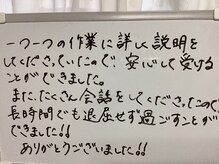 一つ一つの作業に詳しく説明を
してくださっていたので 安心して受ける
ことができました。
また、たくさん会話をしてくださったので
長時間でも退屈せず過ごすことが
できました!!
ありがとうございました!!